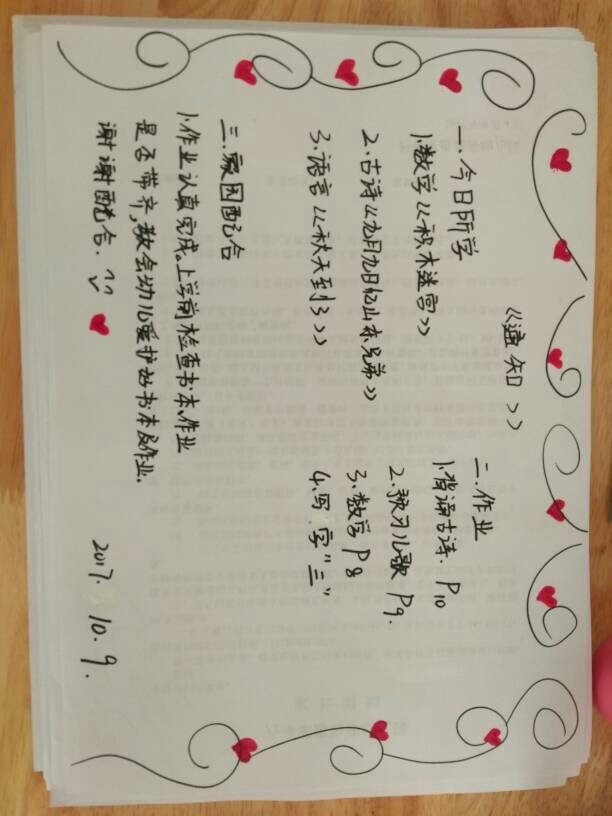 《通知》
一.今日所学
1.数学《积木迷宫》
2.古诗《九月九日忆山东兄弟》
3.语言《秋天到了》
二.作业
1.背诵古诗.P10
2.复习儿歌P9.
3.数学P8
4.写字"三"
三.家园配合
1.作业认真完成。上学前检查书本、作业
是否带齐,教会幼儿爱护好书本及作业.
谢谢配合.^^
2017.10.9.